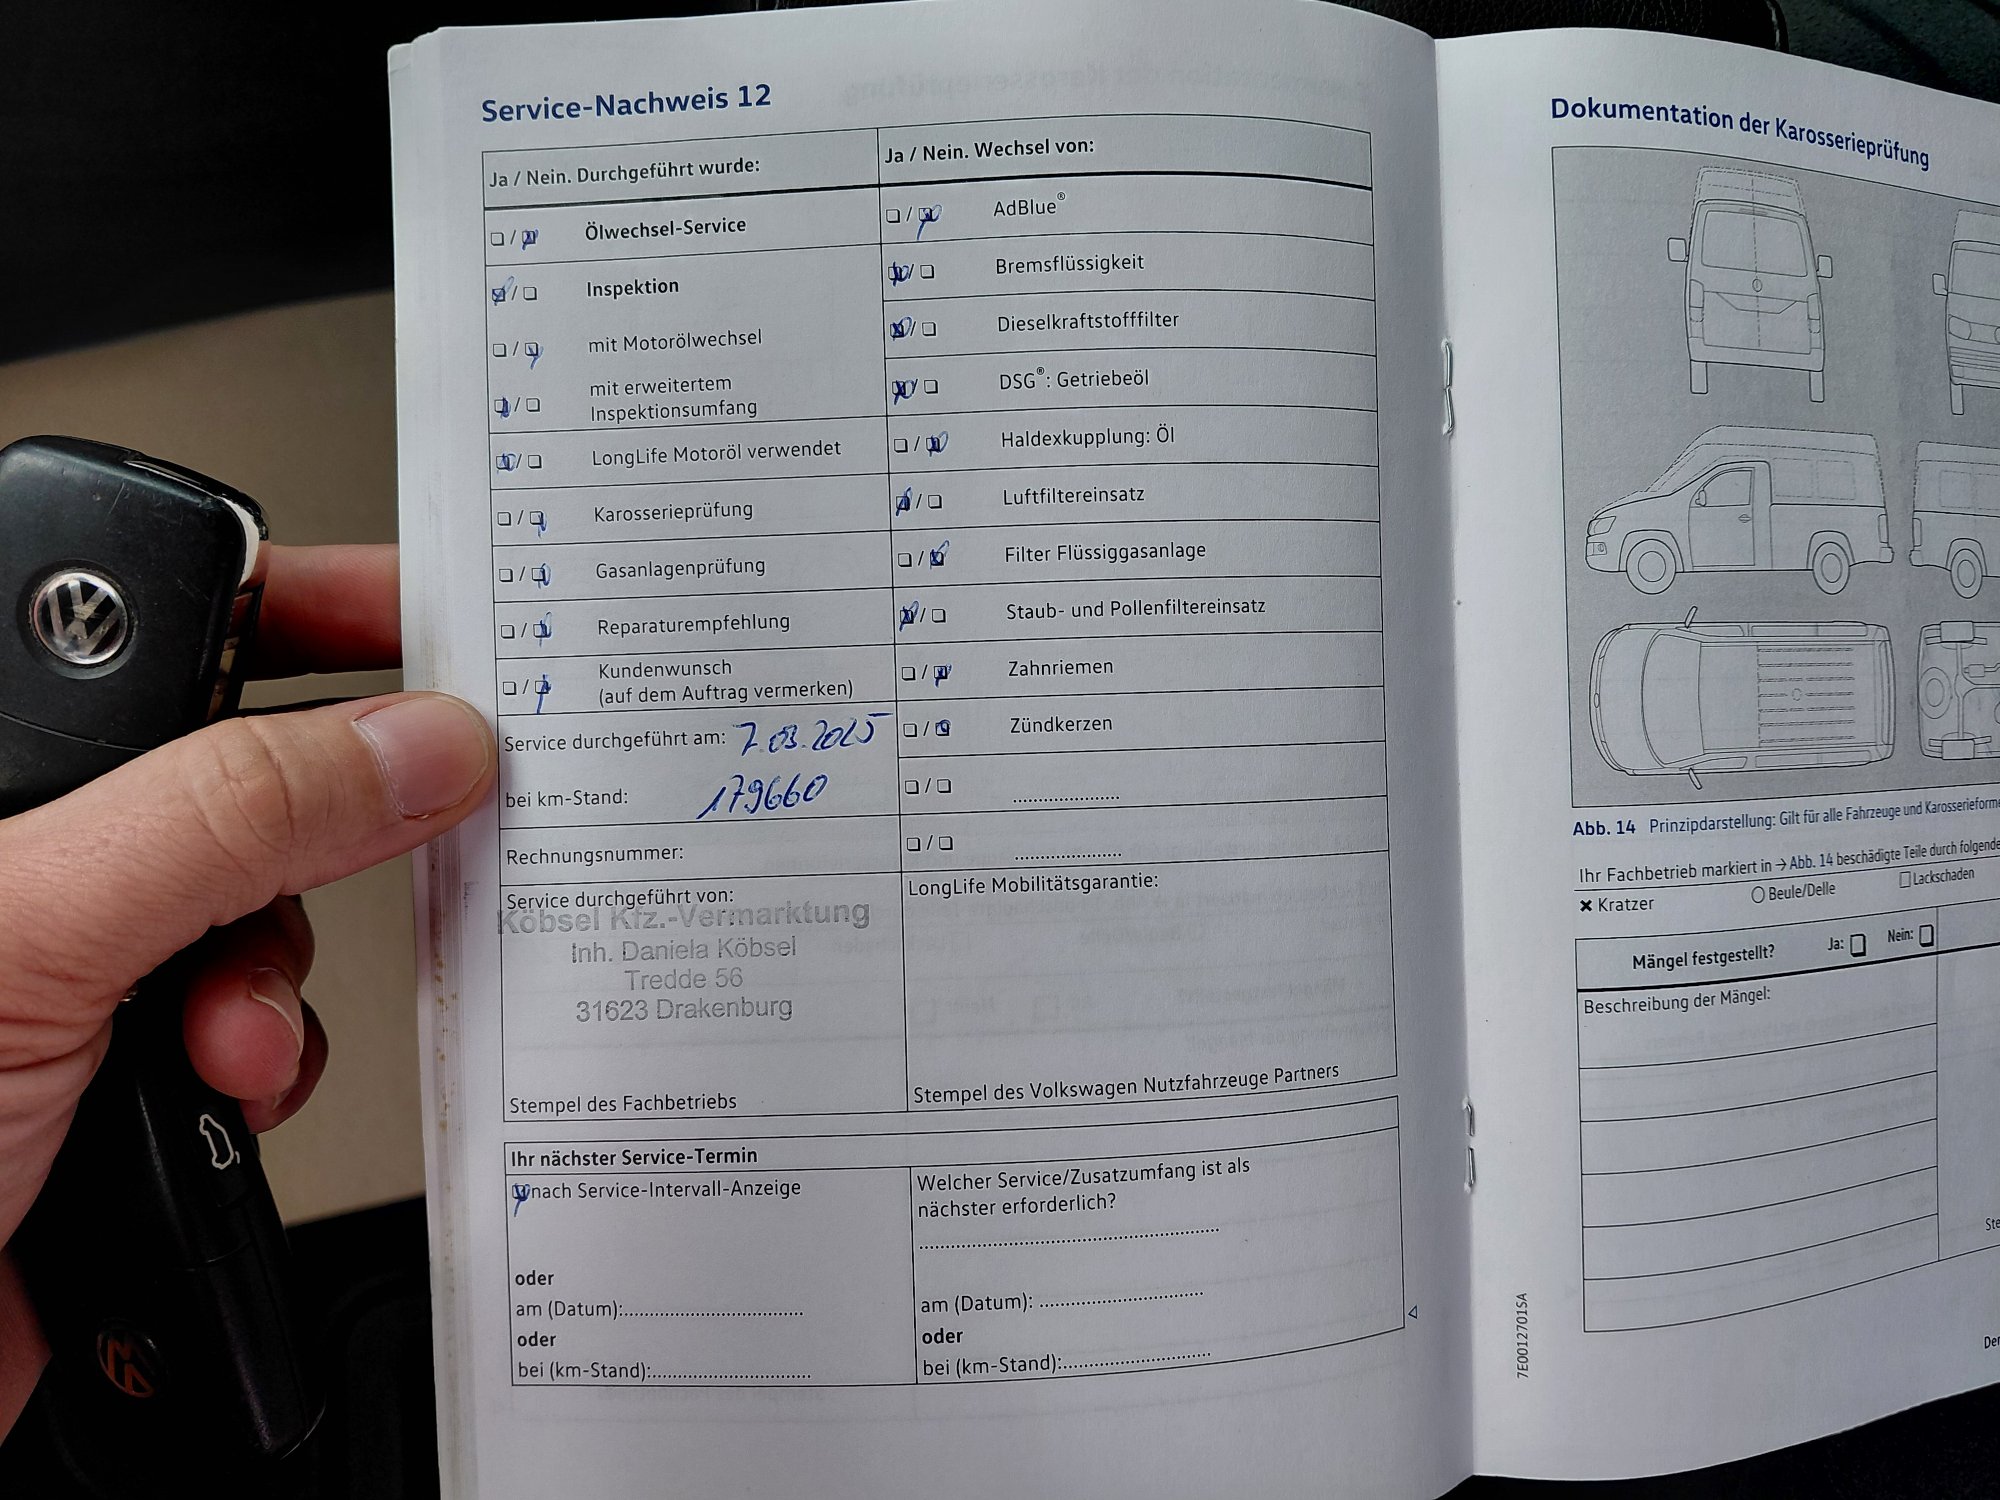 Service-Nachweis 12
Ja / Nein. Durchgeführt wurde:
Ölwechsel-Service
Inspektion
mit Motorölwechsel
mit erweitertem
Inspektionsumfang
LongLife Motoröl verwendet
Karosserieprüfung
Gasanlagenprüfung
Reparaturempfehlung
Kundenwunsch
(auf dem Auftrag vermerken)
Service durchgeführt am: 7.03.2025
bei km-Stand: 179660
Rechnungsnummer:
Service durchgeführt von:
Köbsel Kfz.-Vermarktung
Inh. Daniela Köbsel
Tredde 56
31623 Drakenburg
Stempel des Fachbetriebs
Ja / Nein. Wechsel von:
AdBlue®
Bremsflüssigkeit
Dieselkraftstofffilter
DSG®: Getriebeöl
Haldexkupplung: Öl
Luftfiltereinsatz
Filter Flüssiggasanlage
Staub- und Pollenfiltereinsatz
Zahnriemen
Zündkerzen
LongLife Mobilitätsgarantie:
Stempel des Volkswagen Nutzfahrzeuge Partners
Ihr nächster Service-Termin
nach Service-Intervall-Anzeige
oder
am (Datum):
oder
bei (km-Stand):
Welcher Service/Zusatzumfang ist als
nächster erforderlich?
am (Datum):
oder
bei (km-Stand):
Dokumentation der Karosserieprüfung
Abb. 14 Prinzipdarstellung: Gilt für alle Fahrzeuge und
Ihr Fachbetrieb markiert in → Abb. 14 beschädigte Teile durch
Kratzer
Beule/Delle
Lackschaden
Mängel festgestellt? Ja: Nein:
Beschreibung der Mängel:
7E0012701SA